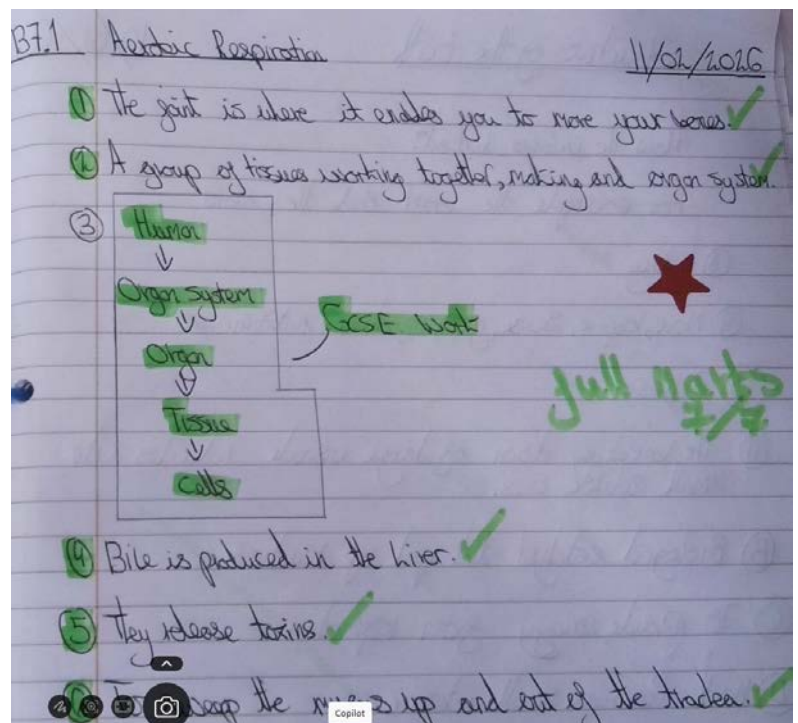 B7.1 Aerobic Respiration 11/02/2026
① The joint is where it enables you to move your bones.
② A group of tissues working together, making and organ system.
③ Human
Organ system
Organ
GCSE Work
Tissue
Cells
full Marks
7/7
④ Bile is produced in the Liver.
⑤ They release toxins.
the up and out of the trachea.
Copilot